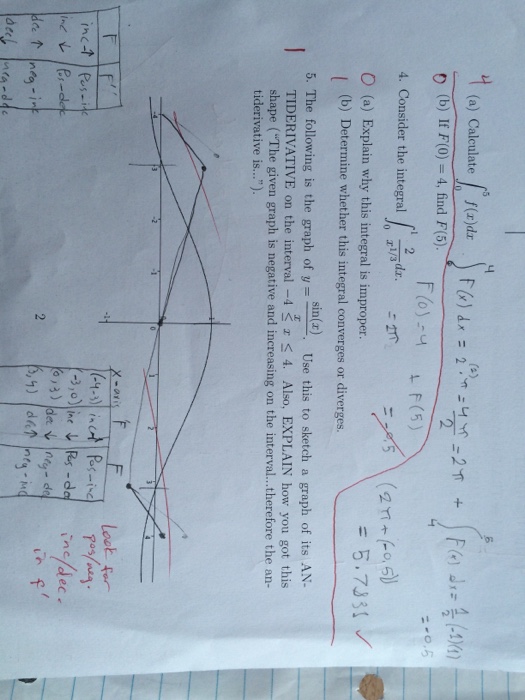 4 (a) Calculate ∫₀⁵ f(x)dx
∫ F(x) dx = = 4π/2 = 2π + ∫ F(x) dx = 1/2 (-1)(1)
= -0.5
0 (b) If F(0) = 4, find F(5).
F(0) = 4 + F(5)
= 2π = -0.5 (2π + (-0.5))
= 5.7831 ✓
4. Consider the integral ∫₀¹ 2/x^{1/3} dx.
0 (a) Explain why this integral is improper.
1 (b) Determine whether this integral converges or diverges.
5. The following is the graph of y = sin(x)/x. Use this to sketch a graph of its AN-
TIDERIVATIVE on the interval −4 ≤ x ≤ 4. Also, EXPLAIN how you got this
shape ("The given graph is negative and increasing on the interval...therefore the an-
tiderivative is...").
-4 -3 -2 -1 0 1 2 3 4
1
-1
F F''
inc ↑ Pos-inc
inc ↓ Pos-dec
dec ↑ neg-inc
dec ↓ neg-dec
2
X-axis F F
(-4,-3) inc Pos-inc
-3,0) inc ↓ Pos-de
(0,3) dec ↓ neg-de
3,4) dec ↑ neg-inc
Look for
pos/neg.
inc/dec.
in f'